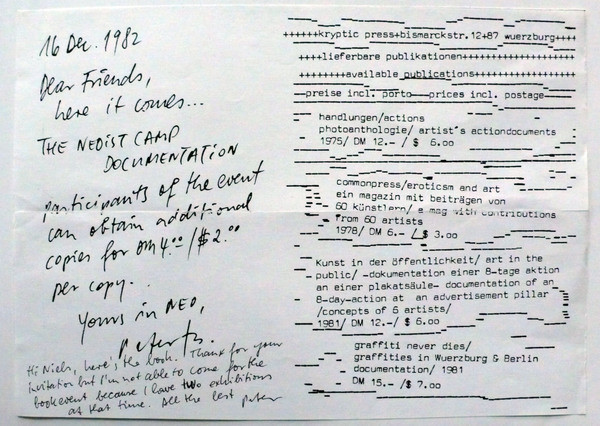 16 Dec. 1982
Dear Friends,
here it comes...
THE NEOIST CAMP
DOCUMENTATION
participants of the event
can obtain additional
copies for DM 4.00 / $ 2.00
per copy.
Yours in NEO,
Hi Niels, here's the book. Thank for your
invitation but I'm not able to come for the
book event because I have two exhibitions
at that time. All the best peter
++++++kryptic press+bismarckstr.12+87 wuerzburg++++
++++lieferbare publikationen++++++++++++++
++++++++available publications+++++++++++
—preise incl. porto——prices incl. postage——
handlungen/actions
photoanthologie/ artist's actiondocuments
1975/ DM 12.- / $ 6.00
commonpress/eroticsm and art
ein magazin mit beiträgen von
60 künstlern/ e mag with contributions
from 60 artists
1978/ DM 6.- / $ 3.00
Kunst in der öffentlichkeit/ art in the
public/ -dokumentation einer 8-tage aktion
an einer plakatsäule- documentation of an
8-day-action at an advertisement pillar
/concepts of 6 artists/
1981/ DM 12.-/ $ 6.00
graffiti never dies/
graffities in Wuerzburg & Berlin
documentation/ 1981
DM 15.- /$ 7.00